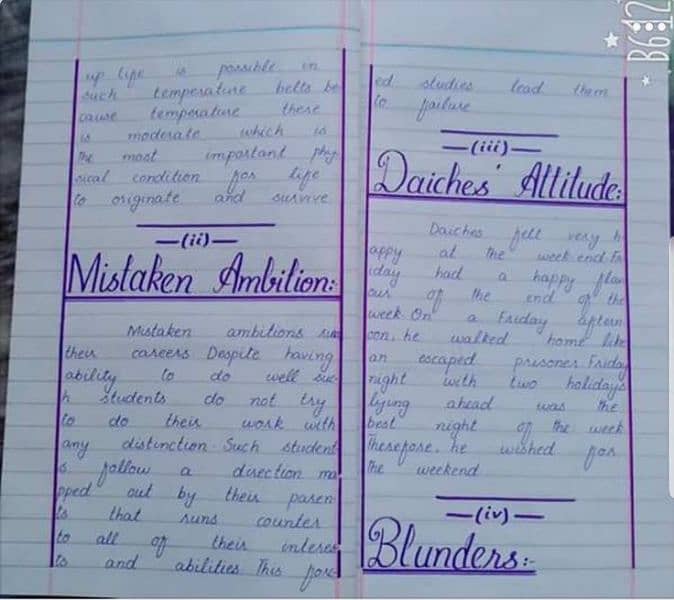 up life is possible in
such temperature belts be
cause temperature there
is moderate which is
the most important phy
sical condition for life
to originate and survive
(ii)
Mistaken Ambition:
Mistaken ambitions ruin
their careers Despite having
ability to do well suc
h students do not try
to do their work with
any distinction. Such student
s follow a direction ma
pped out by their paren
ts that runs counter
to all of their interes
ts and abilities. This forc
ed studies lead them
to failure
(iii)
Daiches' Attitude:
Daiches felt very h
appy at the week end. Fr
iday had a happy flav
our of the end of the
week. On a Friday aftern
oon, he walked home like
an escaped prisoner. Friday
night with two holidays
lying ahead was the
best night of the week
Therefore, he wished for
the weekend
(iv)
Blunders:-
B612